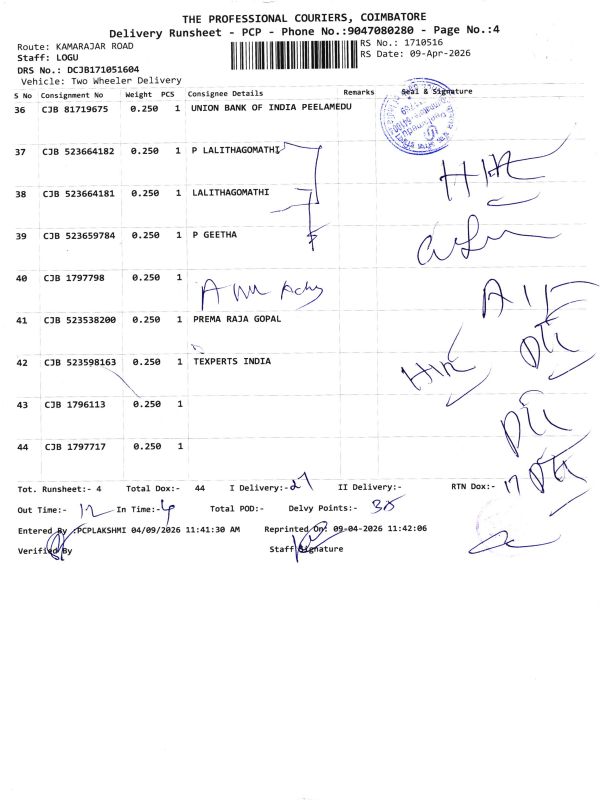 THE PROFESSIONAL COURIERS, COIMBATORE
Delivery Runsheet - PCP - Phone No.:9047080280 - Page No.:4
Route: KAMARAJAR ROAD RS No.: 1710516
Staff: LOGU RS Date: 09-Apr-2026
DRS No.: DCJB171051604
Vehicle: Two Wheeler Delivery
S No Consignment No Weight PCS Consignee Details Remarks Seal & Signature
36 CJB 81719675 0.250 1 UNION BANK OF INDIA PEELAMEDU
37 CJB 523664182 0.250 1 P LALITHAGOMATHI
38 CJB 523664181 0.250 1 LALITHAGOMATHI
39 CJB 523659784 0.250 1 P GEETHA
40 CJB 1797798 0.250 1
41 CJB 523538200 0.250 1 PREMA RAJA GOPAL
42 CJB 523598163 0.250 1 TEXPERTS INDIA
43 CJB 1796113 0.250 1
44 CJB 1797717 0.250 1
Tot. Runsheet:- 4 Total Dox:- 44 I Delivery:- 27 II Delivery:- RTN Dox:- 17
Out Time:- 12 In Time:- 4 Total POD:- Delvy Points:- 35
Entered By :PCPLAKSHMI 04/09/2026 11:41:30 AM Reprinted On: 09-04-2026 11:42:06
Verified By Staff Signature